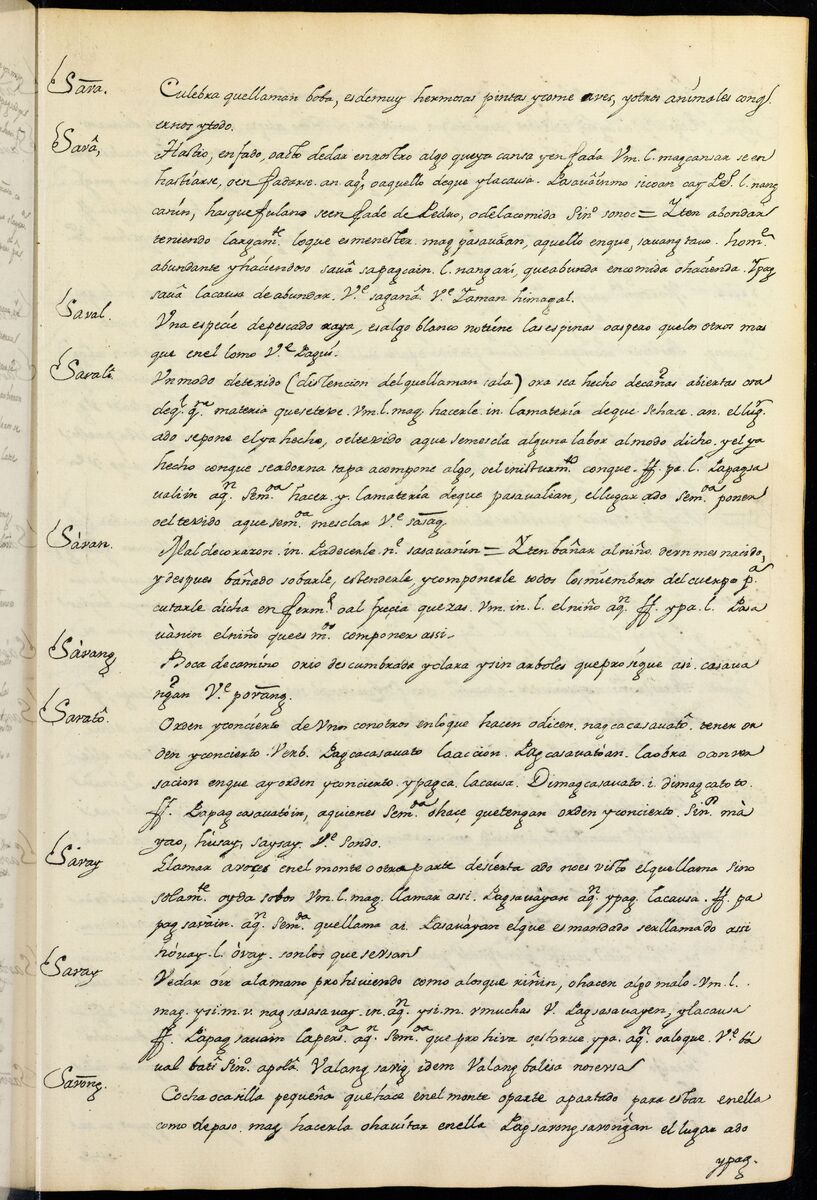 Sāva. Culebra quellaman boba, esdemuy hermosas pintas ycome aves, yotros animales congl.
ernos ytodo.
Savâ, Hastio, enfado, oacto dedar enrostro algo queya cansa yenfada Vm. l. mag cansar se en
hastiarse, oenfadarse. an. aq̃, oaquello deque ylacausa. Pasavâinmo sicoan cay Pẽ. l. nang
canin, hasque fulano seenfade de Pedro, odelacomida Sin.º sonoc = Yten abondar
teniendo largam.te loque esmenester. mag pasavâan, aquello enque, savang tavo. hom.e
abundante yhaciendoso savâ sapagcain. l. nang ari, queabunda encomida ohacienda. Ypag
savâ lacausa deabundar. V.e saganâ V.e Taman himagal.
Saval. Vna especie depescado raya, esalgo blanco notiene las espinas oaspero quelos otros mas
que enel lomo V.e Paguí.
Savali. Vnmodo detexido (distencion delquellaman sala) ora sea hecho decañas abiertas ora
deq.l q.e materia quesetexe. Vm. l. mag. hacerle. in. lamateria deque sehace. an. ellug.r
ado sepone elya hecho, oeltexido aque semescla alguna labor almodo dicho. yelya
hecho conque seadorna tapa acompone algo, oelinisturm.to conque. ff. pa. l. Papagsa
valiin aq.n sem.da hacer. y. lamateria deque pasavalian, ellugar ado sem.da poner
oeltexido aque sem.da mesclar V.e sasag.
Sàvan. Mal decorazon. in. Padecerle. n.e sasavanin = Yten bañar alniño. deun mes nacido,
y despues bañado sobarle, estenderle, ycomponerle todos los miembros del cuerpo p.a
curarle dicha enferm.d oal freçia queras. Vm. in. l. el niño aq.n ff. ypa. l. Pasa
vànin elniño quees m.do componer assi.
Sàvang Boca decamino orio descumbrada yclara ysin arboles queprosigue asi. casava
ngan V.e povang.
Savatô. Orden yconcierto de Vnos conotros enloque hacen odicen. nagcacasavatô. tener or
den yconcierto. Verb. Pagcacasavato laacción. Pagcasavatóan. laobra oconver
sacion enque ayorden yconcierto. ypagca. lacausa. Dimagcasavato. i. dimagcatoto.
ff. Papagcasavatóin, aquienes sem.da ohace quetengan orden yconcierto Sin.º mà
yao, húsay, saysay. V.e sondo.
Sàvay Llamar avoces enel monte ootra parte desierta ado noes visto elquellama sino
solam.te oyda sobos Vm. l. mag. llamar assi. Pagsavàyan aq.n ypag. lacausa. ff. pa
pag savàin. aq.n Sem.da quellama asi. Pasavàyan elque esmandado serllamado assi
hóvay. l. òvay. sonlos que sevsan
Savay Vedar oir alamano prohiviendo como alosque riñin, ohacen algo malo. Vm. l.
mag. ysi.m. v. nag sasasavay. in. aq.n ysi.m. vmuchas V. Pagsasavayen, ylacausa
ff. Papag savain lapers.a aq.n Sem.da que prohiva oestorve, ypa. aq.n oaloque. V.e bâ
val batí Sin.º apolâ. Valang savig, idem Valang balisa nosevsa
Savong. Cocha ocasilla pequeña quehace enel monte oparte apartado para estar enella
como depaso. mag hacerla ohavitar enella Pagsavongsavongàn el lugar ado
ypag.